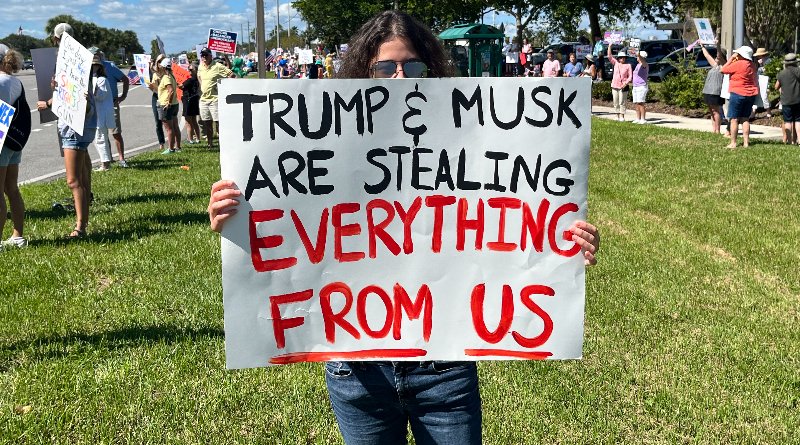 TRUMP & MUSK
ARE STEALING
EVERYTHING
FROM US